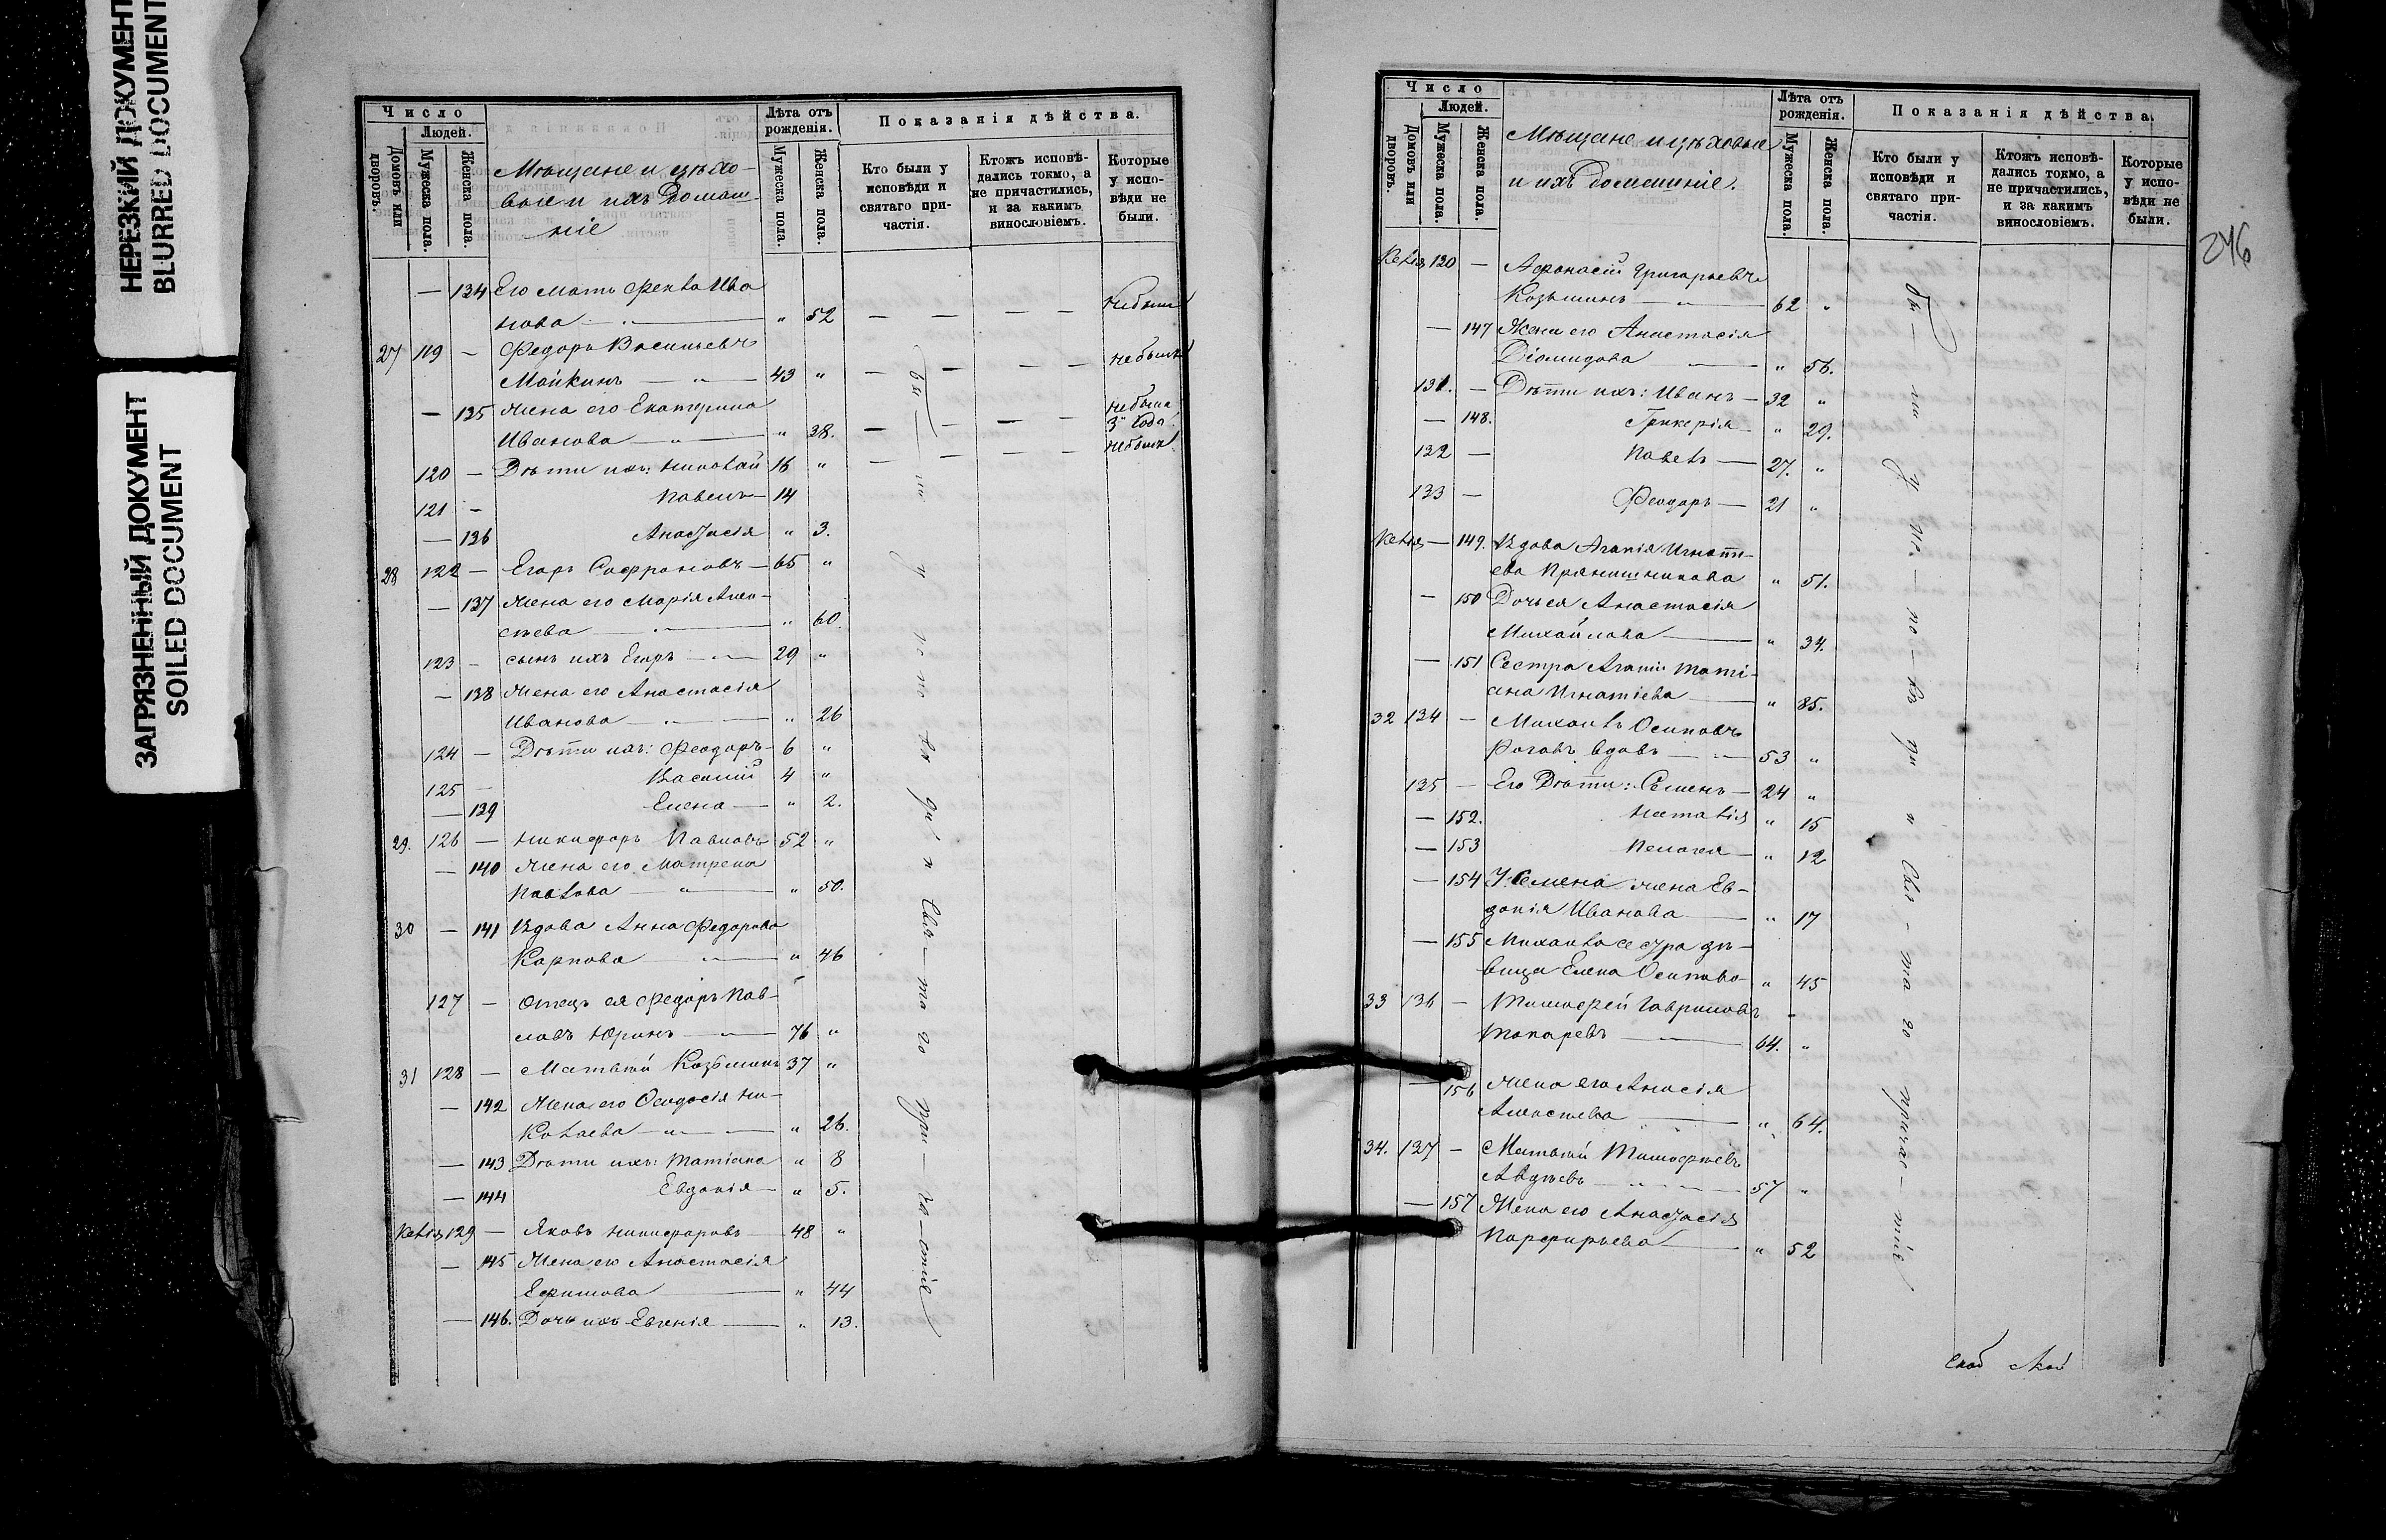 НЕРЕЗКИЙ ДОКУМЕНТ
BLURRED DOCUMENT
ЗАГРЯЗНЕННЫЙ ДОКУМЕНТ
SOILED DOCUMENT
Число
Людей.
Домовъ или дворовъ.
Мужеска пола.
Женска пола.
Мѣщане и цѣхо-
вые и ихъ Домаш-
ніе
Лѣта отъ рожденія.
Мужеска пола.
Женска пола.
Показанія дѣйства.
Кто были у исповѣди и святаго при-частія.
Ктожъ исповѣ-дались токмо, а не причастились, и за какимъ винословіемъ.
Которые у испо-вѣди не были.
— 134 Его мать Фекла Ива
нова — " 52 — — — — не была
27 119 — Федоръ Васильевъ
Майкинъ — 43 " — — — — не былъ
— 135 Жена его Екатерина
Иванова — " 38. — — — — не была
3 года
120 — Дѣти ихъ: Николай 16 " — — — — не былъ
121 — Павелъ — 14
— 136 Анастасія " 3.
28 122 — Егоръ Сафроновъ — 65 "
— 137 Жена его Марія Алек-
сѣева — " 60.
123 — сынъ ихъ Егоръ — 29 "
— 138 Жена его Анастасія
Иванова — " 26
124 — Дѣти ихъ: Феодоръ — 6 "
125 — Василій 4 "
— 139 Елена — " 2.
29. 126 — Никифоръ Павловъ 52 "
— 140 Жена его Матрена
Павлова — " 50.
30 — 141 Вдова Анна Федорова
Карпова — " 46
127 — Отецъ ея Федоръ Пав-
ловъ Юринъ — 76 "
31 128 — Матвѣй Козьминъ 37 "
— 142 Жена его Ѳеодосія Ни-
колаева — " 26.
— 143 Дѣти ихъ: Татіана " 8
— 144 Евдокія — " 5.
Келія 129 — Яковъ Никифоровъ — 48 "
— 145 Жена его Анастасія
Ефимова — " 44
— 146. Дочь ихъ Евгенія — " 13.
Число
Людей.
Домовъ или дворовъ.
Мужеска пола.
Женска пола.
Мѣщане и цѣховые
и ихъ домашніе.
Лѣта отъ рожденія.
Мужеска пола.
Женска пола.
Показанія дѣйства.
Кто были у исповѣди и святаго при-частія.
Ктожъ исповѣ-дались токмо, а не причастились, и за какимъ винословіемъ.
Которые у испо-вѣди не были.
246
Келія 130 — Афанасій Григорьевъ
Козьминъ — 62 "
— 147 Жена его Анастасія
Діомидова — " 56.
131. — Дѣти ихъ: Иванъ — 32 "
— 148. Гликерія — " 29.
132 — Павелъ — 27. "
133 — Феодоръ — 21 "
Келія — 149. Вдова Агапія Игнать-
ева Прянишникова " 51.
— 150 Дочь ея Анастасія
Михайлова — " 34.
— 151 Сестра Агапіи Тати-
ана Игнатіева — " 85.
32 134 — Михаилъ Осиповъ
Роговъ вдовъ — 53 "
135 — Его Дѣти: Семенъ — 24 "
— 152. Наталія " 15
— 153 Пелагея — " 12
— 154 У Семена жена Ев-
докія Иванова — " 17
— 155 Михаила сестра дѣ-
вица Елена Осипова — " 45
33 136 — Тимофей Гавриловъ
Токаревъ — 64. "
— 156 Жена его Анасія
Алексѣева — " 64.
34. 137 — Матвѣй Тимофѣевъ
Авдѣевъ — 57 "
— 157 Жена его Анастасія
Порфирьева — " 52
бы — ли у ис — по — вѣ ди и Свя — та го причас — тія